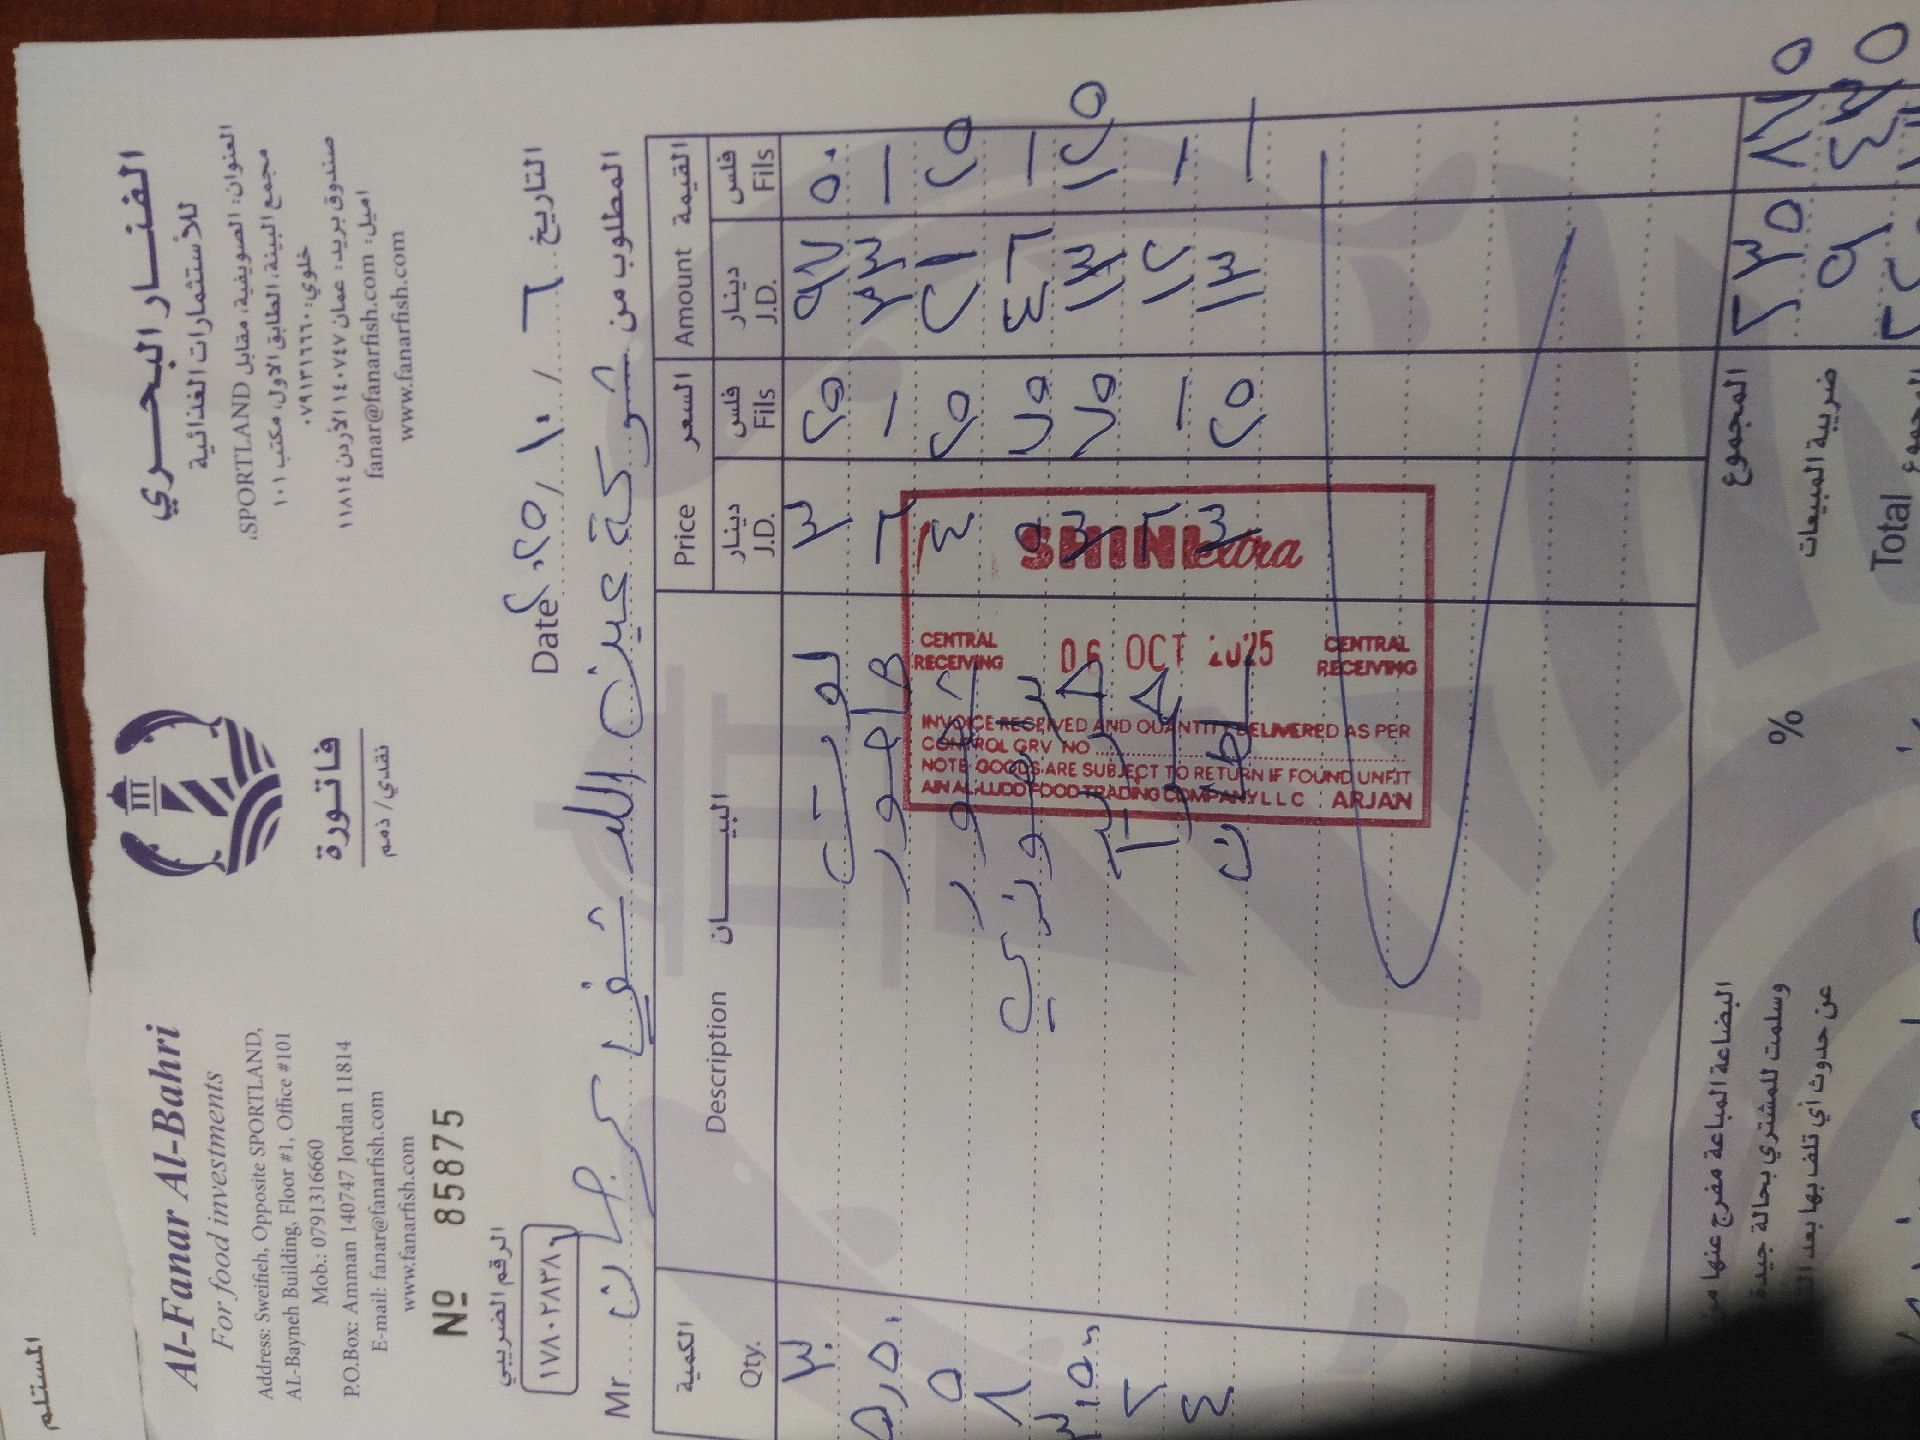 المستلم
Al-Fanar Al-Bahri
For food investments
Address: Sweifieh, Opposite SPORTLAND,
AL-Bayneh Building, Floor #1, Office #101
Mob.: 0791316660
P.O.Box: Amman 140747 Jordan 11814
E-mail: fanar@fanarfish.com
www.fanarfish.com
الفنار البحري
للأستثمارات الغذائية
العنوان: الصويفية، مقابل SPORTLAND.
مجمع البينة، الطابق الاول، مكتب ١٠١
خلوي: ٠٧٩١٣١٦٦٦٠
صندوق بريد: عمان ١٤٠٧٤٧ الأردن ١١٨١٤
اميل: fanar@fanarfish.com
www.fanarfish.com
فاتورة
نقدي / ذمم
Nº 85875
الرقم الضريبي
١٧٨٠٢٨٣٨٠
Date ٢٠٢٥/١٠/٦ التاريخ
Mr. شركة عين اللد شفا عرجان المطلوب من
الكمية البيان السعر Price القيمة Amount
Qty. Description دينار J.D. فلس Fils دينار J.D. فلس Fils
٣٠ لورت ٣ ٢٥ ٩٧ ٥٠
٥,٥٠ هامور B ٦ - ٣٣ -
٥ هامور ٤ ٢٥ ٢١ ٢٥
٨ ٥ ٧٥ ٤٦ -
٣,٥٠ ٣ ٧٥ ١٣ ١٢٥
٢ ٦ - ١٢ -
٤ سلطان ٣ ٢٥ ١٣ -
SHINI extra
CENTRAL RECEIVING 06 OCT 2025 CENTRAL RECEIVING
INVOICE RECEIVED AND QUANTITY DELIVERED AS PER
CONTROL GRV NO
NOTE GOODS ARE SUBJECT TO RETURN IF FOUND UNFIT
AIN AL-LUDD FOOD TRADING COMPANY LLC ARJAN
البضاعة المباعة مفرج عنها من
وسلمت للمشتري بحالة جيدة
عن حدوث أي تلف بها بعد
المجموع ٢٣٥ ٨٧٥
% ضريبة المبيعات ٩ ٤٣٥
Total المجموع